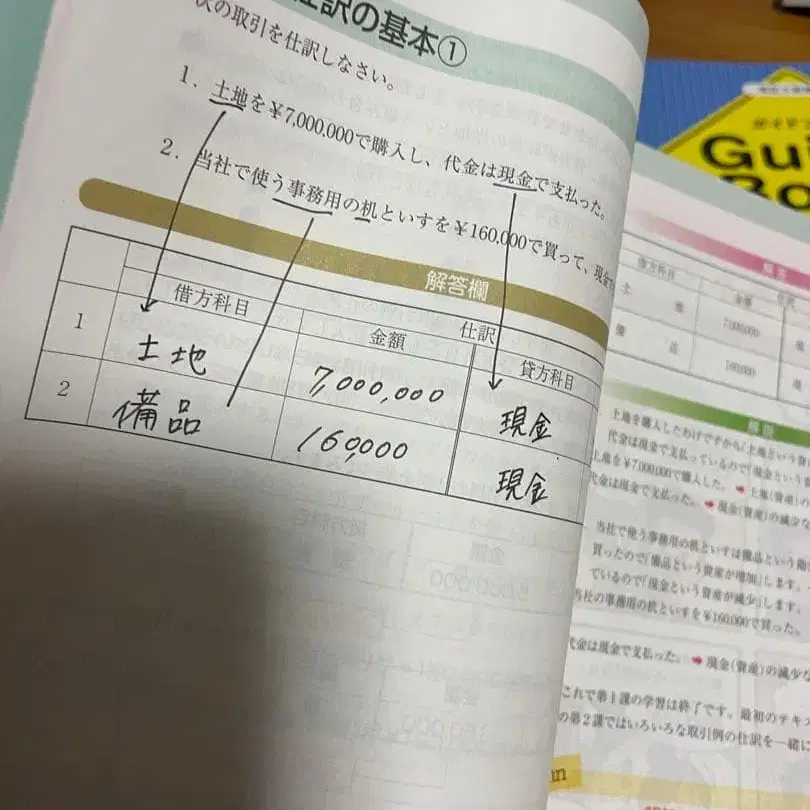 仕訳の基本①
次の取引を仕訳しなさい。
1. 土地を¥7,000,000で購入し、代金は現金で支払った。
2. 当社で使う事務用の机といすを¥160,000で買って、現金で
解答欄
仕訳
借方科目 金額 貸方科目
1 土地 7,000,000 現金
2 備品 160,000 現金
Gui
解答
仕訳
借方科目 金額
土 地 7,000,000 現
備 品 160,000 現
解説
土地を購入したわけですから「土地という資
代金は現金で支払っているので「現金という資
土地を¥7,000,000で購入した。 ➡ 土地(資産)の
代金は現金で支払った。 ➡ 現金(資産)の減少な
当社で使う事務用の机といすは備品という
買ったので「備品という資産が増加」します。
ているので「現金という資産が減少」します。
当社の事務用の机といすを¥160,000で買った。
代金は現金で支払った。 ➡ 現金(資産)の減少な
これで第1課の学習は終了です。最初のテキス
の第2課ではいろいろな取引例の仕訳を一緒に